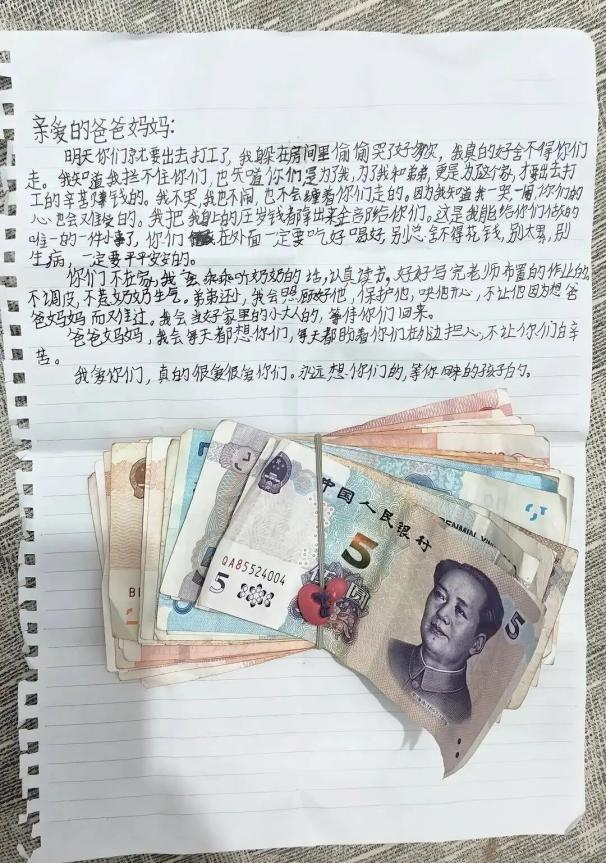 亲爱的爸爸妈妈:
明天你们就要出去打工了,我躲在房间里偷偷哭了好多次,我真的好舍不得你们
走。我知道我拦不住你们,也知道你们是为了我,为了我和弟弟,更是为了这个家,才要出去打
工的辛苦赚钱的。我不哭,我也不闹,也不会缠着你们走的。因为我知道我一哭一闹你们的
心也会又难受的。我把我自己的压岁钱都拿出来全部给你们。这是我能给你们做的
唯一的一件小事了,你们在外面一定要吃好喝好,别总舍不得花钱,别太累,别
生病,一定要平平安安的。
你们不在家,我会乖乖听奶奶的话,认真读书。好好写完老师布置的作业的,
不调皮,不惹奶奶生气。弟弟还小,我会照顾好他,保护他,哄他开心,不让他因为想爸
爸妈妈而又难过。我会当好家里的小大人的,等待你们回来。
爸爸妈妈,我会每天都想你们,每天都盼着你们在那边担心,不让你们白辛
苦。
我爱你们,真的很爱很爱你们。永远想你们的,等你回来的孩子白勺。
中国人民银行
5
QA85524004
5
5